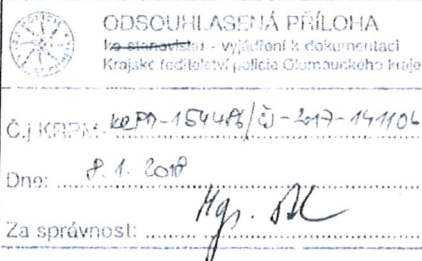 ODSOUHLASENÁ PŘÍLOHA
ke stanovisku - vyjádření k dokumentaci
Krajské ředitelství policie Olomouckého kraje
Č.j KRPM- KRPM-154486/ČJ-2017-141106
Dne: 8. 1. 2018
Za správnost: Mgr.